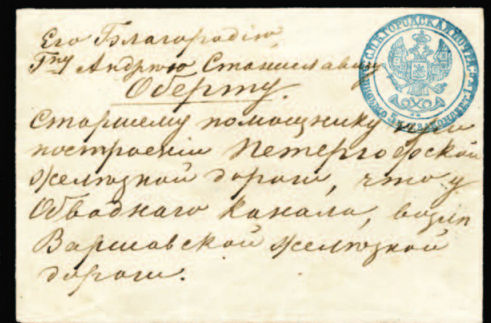 Его Благородию
Гну Андрею Станиславичу
Оберту.
Старшему помощнику при
построении Петергофской
железной дороги, что у
Обводнаго канала, возле
Варшавской железной
дороги.